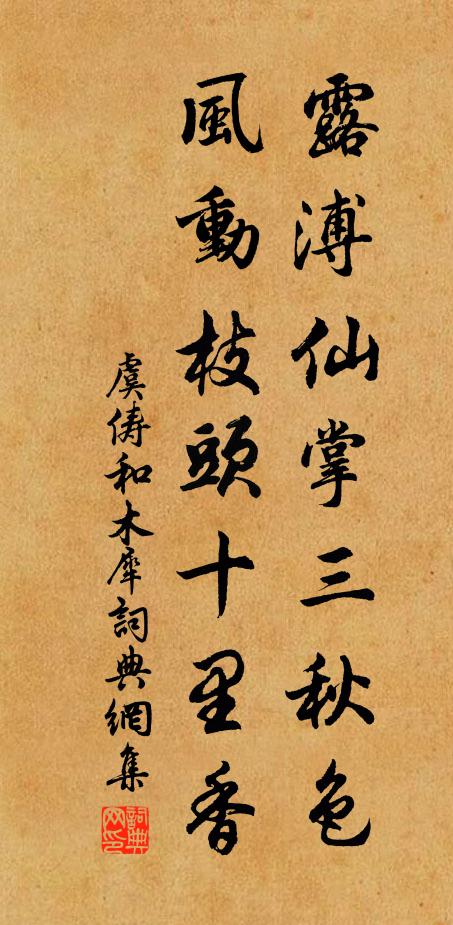 露溥仙掌三秋色
風動枝頭十里香
虞儔和木犀詞典網集
詞典网印